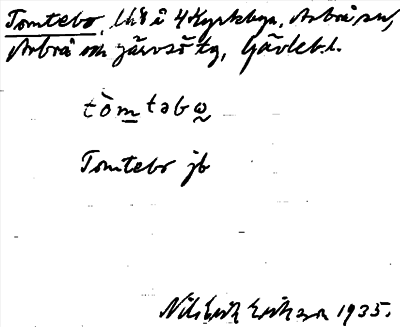 Tomtebo, lht i 4 Kyrkbyn, Arbrå sn,
Arbrå och Järvsö tg, Gävleb. l.
tòmtəbω̰
Tomtebo jb
Nils Erik Eriksson 1935.